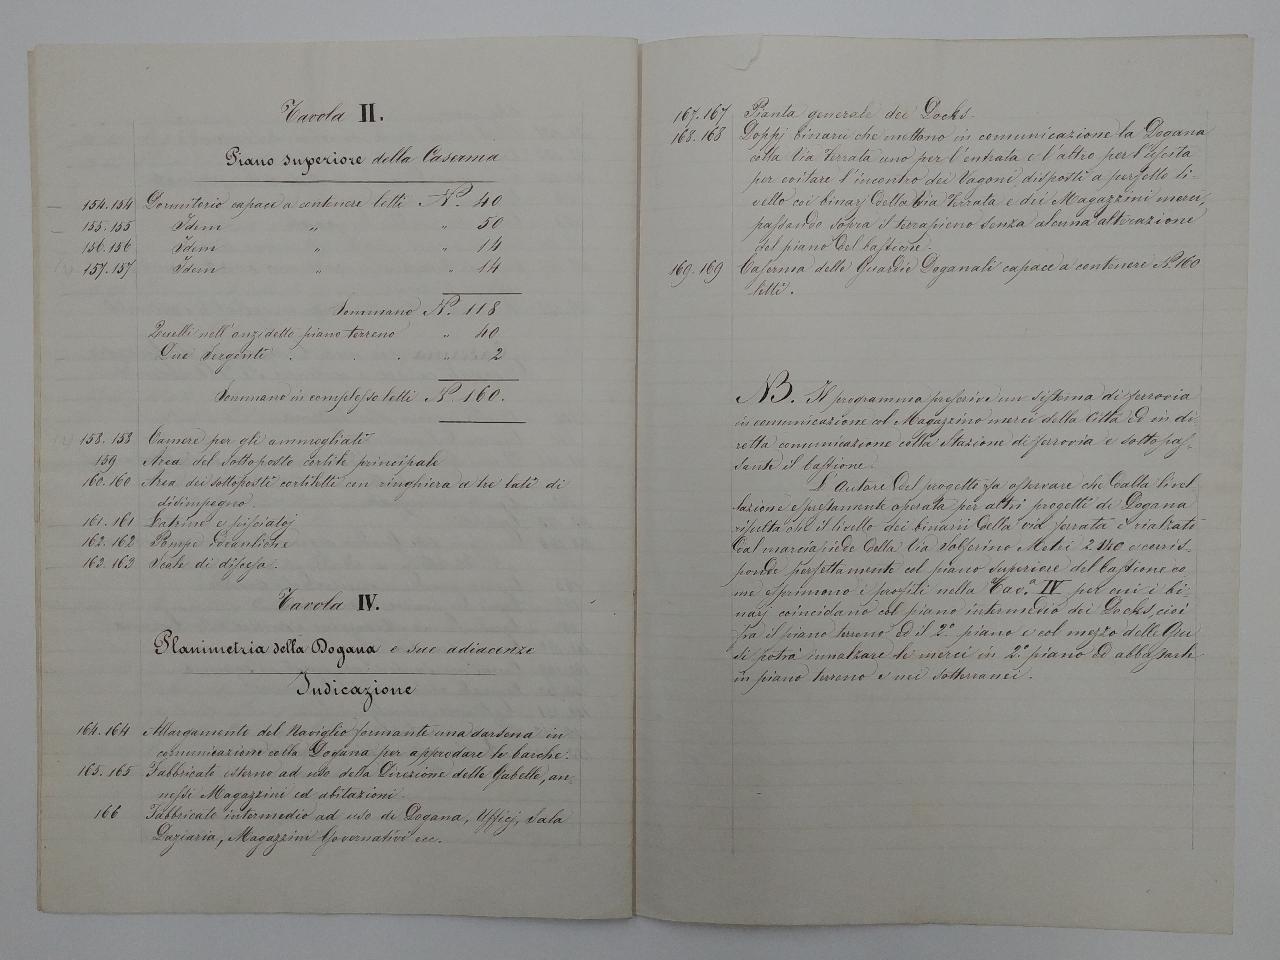 Tavola II.
Piano superiore della Caserma
154.154 Dormitorio capace a contenere letti N.° 40
155.155 Idem " " 50
156.156 Idem " " 14
157.157 Idem " " 14
Sommano N.° 118
Quelli nell'anzidetto piano terreno " 40
Due Sergenti . . . " 2
Sommano in complesso letti N.° 160.
158.158 Camere per gli ammogliati
159 Area del sottoposto cortile principale
160.160 Area dei sottoposti cortiletti con ringhiera a tre lati di
disimpegno.
161.161 Latrine e pisciatoj
162.162 Pompe idrauliche
163.163 Scale di discesa.
Tavola IV.
Planimetria della Dogana e sue adiacenze
Indicazione
164.164 Allargamento del Naviglio formante una darsena in
comunicazione colla Dogana per approdare le barche.
165.165 Fabbricato esterno ad uso della Direzione delle Gabelle, an-
nessi Magazzini ed abitazioni.
166 Fabbricato intermedio ad uso di Dogana, Ufficj, Sala
Daziaria, Magazzini Governativi ecc.
167.167 Pianta generale dei Docks.
168.168 Doppj binarii che mettono in comunicazione la Dogana
colla Via ferrata uno per l'entrata e l'altro per l'escita
per evitare l'incontro dei Vagoni, disposti a perfetto li-
vello coi binarj della Via ferrata e dei Magazzini merci,
passando sopra il terrapieno senza alcuna alterazione
del piano del bastione.
169.169 Caserma delle Guardie Doganali capace a contenere N.° 160
letti.
NB. Il programma prescrive un sistema di ferrovia
in comunicazione col Magazzino merci della Città ed in di
retta comunicazione colla Stazione di ferrovia e sottopas-
sante il bastione.
L'autore del progetto fa osservare che dalla livel
lazione espressamente operata per altri progetti di Dogana
risulta che il livello dei binarii della via ferrata è rialzato
dal marciapiede della Via Solferino Metri 2.140 e corris-
ponde perfettamente col piano superiore del bastione co
me esprimono i profili nella Tav.a IV per cui i bi-
narj coincidano col piano intermedio dei Docks cioè
fra il piano terreno ed il 2.° piano e col mezzo delle Gru
si potrà innalzare le merci in 2.° piano ed abbassarle
in piano terreno e nei sotterranei.